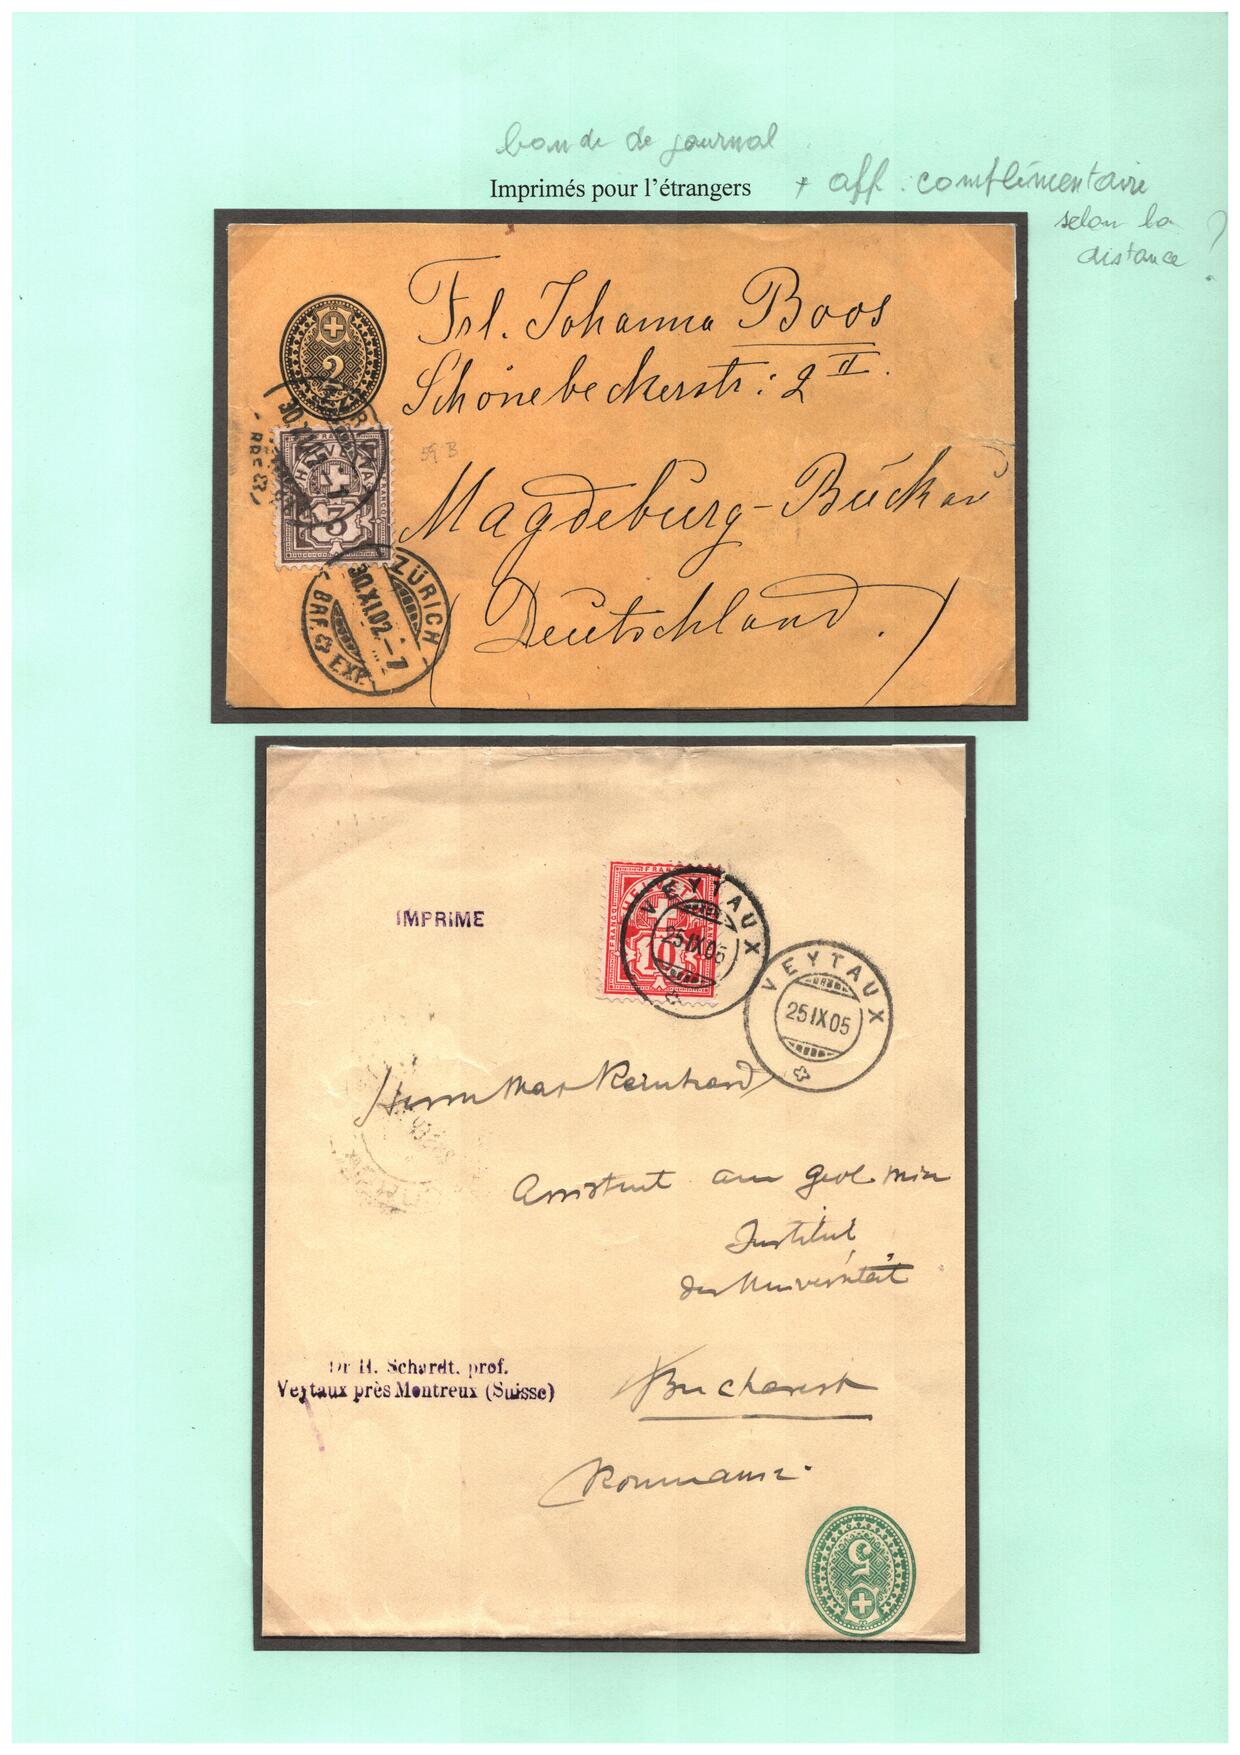 bande de journal
Imprimés pour l'étrangers + aff. complémentaire
selon la
distance ?
Frl. Johanna Boos
Schönebeckerstr: 2 II.
2
59 B
HELVETIA
3
Magdeburg-Buckau
ZÜRICH
30.XI.02.-7
BRF. EXP.
(Deutschland.)
FRANCO
HELVETIA
10
IMPRIME
VEYTAUX
25 IX 05
VEYTAUX
25 IX 05
Herrn Max Reinhard
Assistent am Geol. Min
Institut
der Universität
Dr H. Schardt. prof.
Veytaux près Montreux (Suisse)
Bucharest
Roumanie.
5